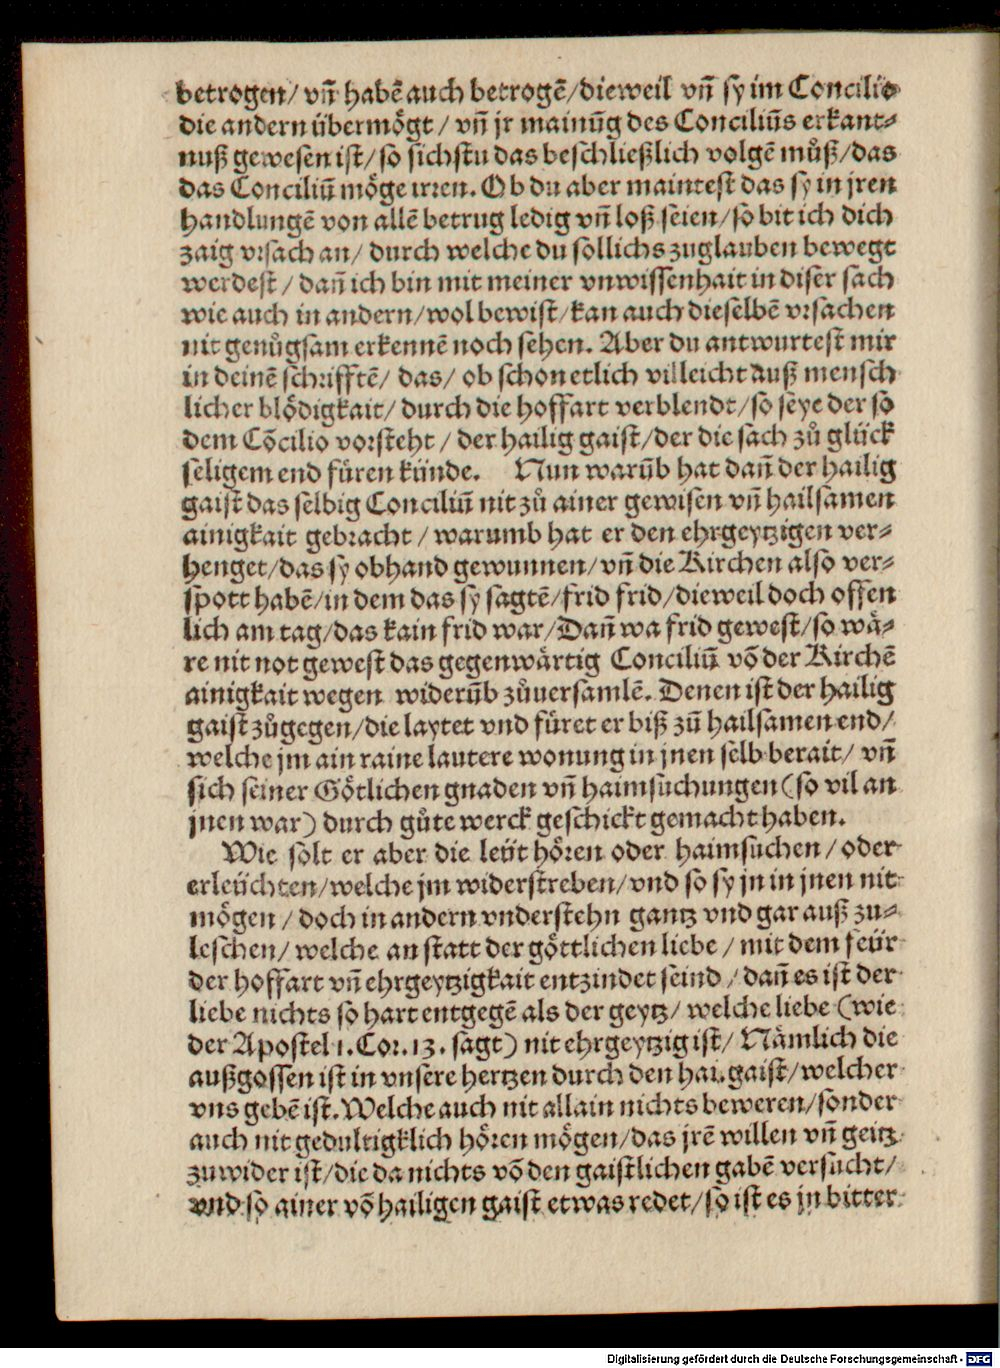 betrogen/ vñ habē auch betrogē/dieweil vñ sy im Concilio
die andern übermögt / vñ jr mainũg des Conciliũs erkant⸗
nuß gewesen ist/so sichstu das beschließlich volgē můß/das
das Conciliũ möge irren. Ob du aber maintest das sy in jren
handlungē von allē betrug ledig vñ loß seien/so bit ich dich
zaig vrsach an/ durch welche du sollichs zuglauben bewegt
werdest / dañ ich bin mit meiner vnwissenhait in diser sach
wie auch in andern/wol bewist/kan auch dieselbē vrsachen
nit genůgsam erkennē noch sehen. Aber du antwurtest mir
in deinē schrifftē/ das/ ob schon etlich villeicht auß mensch
licher blödigkait/ durch die hoffart verblendt/so seye der so
dem Cōcilio vorsteht / der hailig gaist/der die sach zů glück
seligem end füren künde. Nun warũb hat dañ der hailig
gaist das selbig Conciliũ nit zů ainer gewisen vñ hailsamen
ainigkait gebracht / warumb hat er den ehrgeytzigen ver⸗
henget/das sy obhand gewunnen/ vñ die Kirchen also ver⸗
spott habē/in dem das sy sagtē/frid frid/dieweil doch offen
lich am tag/das kain frid war/Dañ wa frid gewest/so wä⸗
re nit not gewest das gegenwärtig Conciliũ vō der Kirchē
ainigkait wegen widerũb zůuersamlē. Denen ist der hailig
gaist zůgegen/die laytet vnd füret er biß zũ hailsamen end/
welche jm ain raine lautere wonung in jnen selb berait/ vñ
sich seiner Götlichen gnaden vñ haimsuchungen (so vil an
jnen war) durch gůte werck geschickt gemacht haben.
Wie solt er aber die leüt hören oder haimsuchen / oder
erleüchten/welche jm widerstreben/vnd so sy jn in jnen nit
mögen / doch in andern vnderstehn gantz vnd gar auß zu⸗
leschen/ welche an statt der göttlichen liebe / mit dem feür
der hoffart vñ ehrgeytzigkait entzindet seind / dañ es ist der
liebe nichts so hart entgegē als der geytz/ welche liebe (wie
der Apostel 1. Cor. 13. sagt) nit ehrgeytzig ist/ Nämlich die
außgossen ist in vnsere hertzen durch den hai. gaist/welcher
vns gebē ist. Welche auch nit allain nichts beweren/sonder
auch nit gedultigklich hören mögen/das jrē willen vñ geitz
zuwider ist/die da nichts vō den gaistlichen gabē versucht/
vnd so ainer vō hailigen gaist etwas redet/so ist es jn bitter
Digitalisierung gefördert durch die Deutsche Forschungsgemeinschaft - DFG